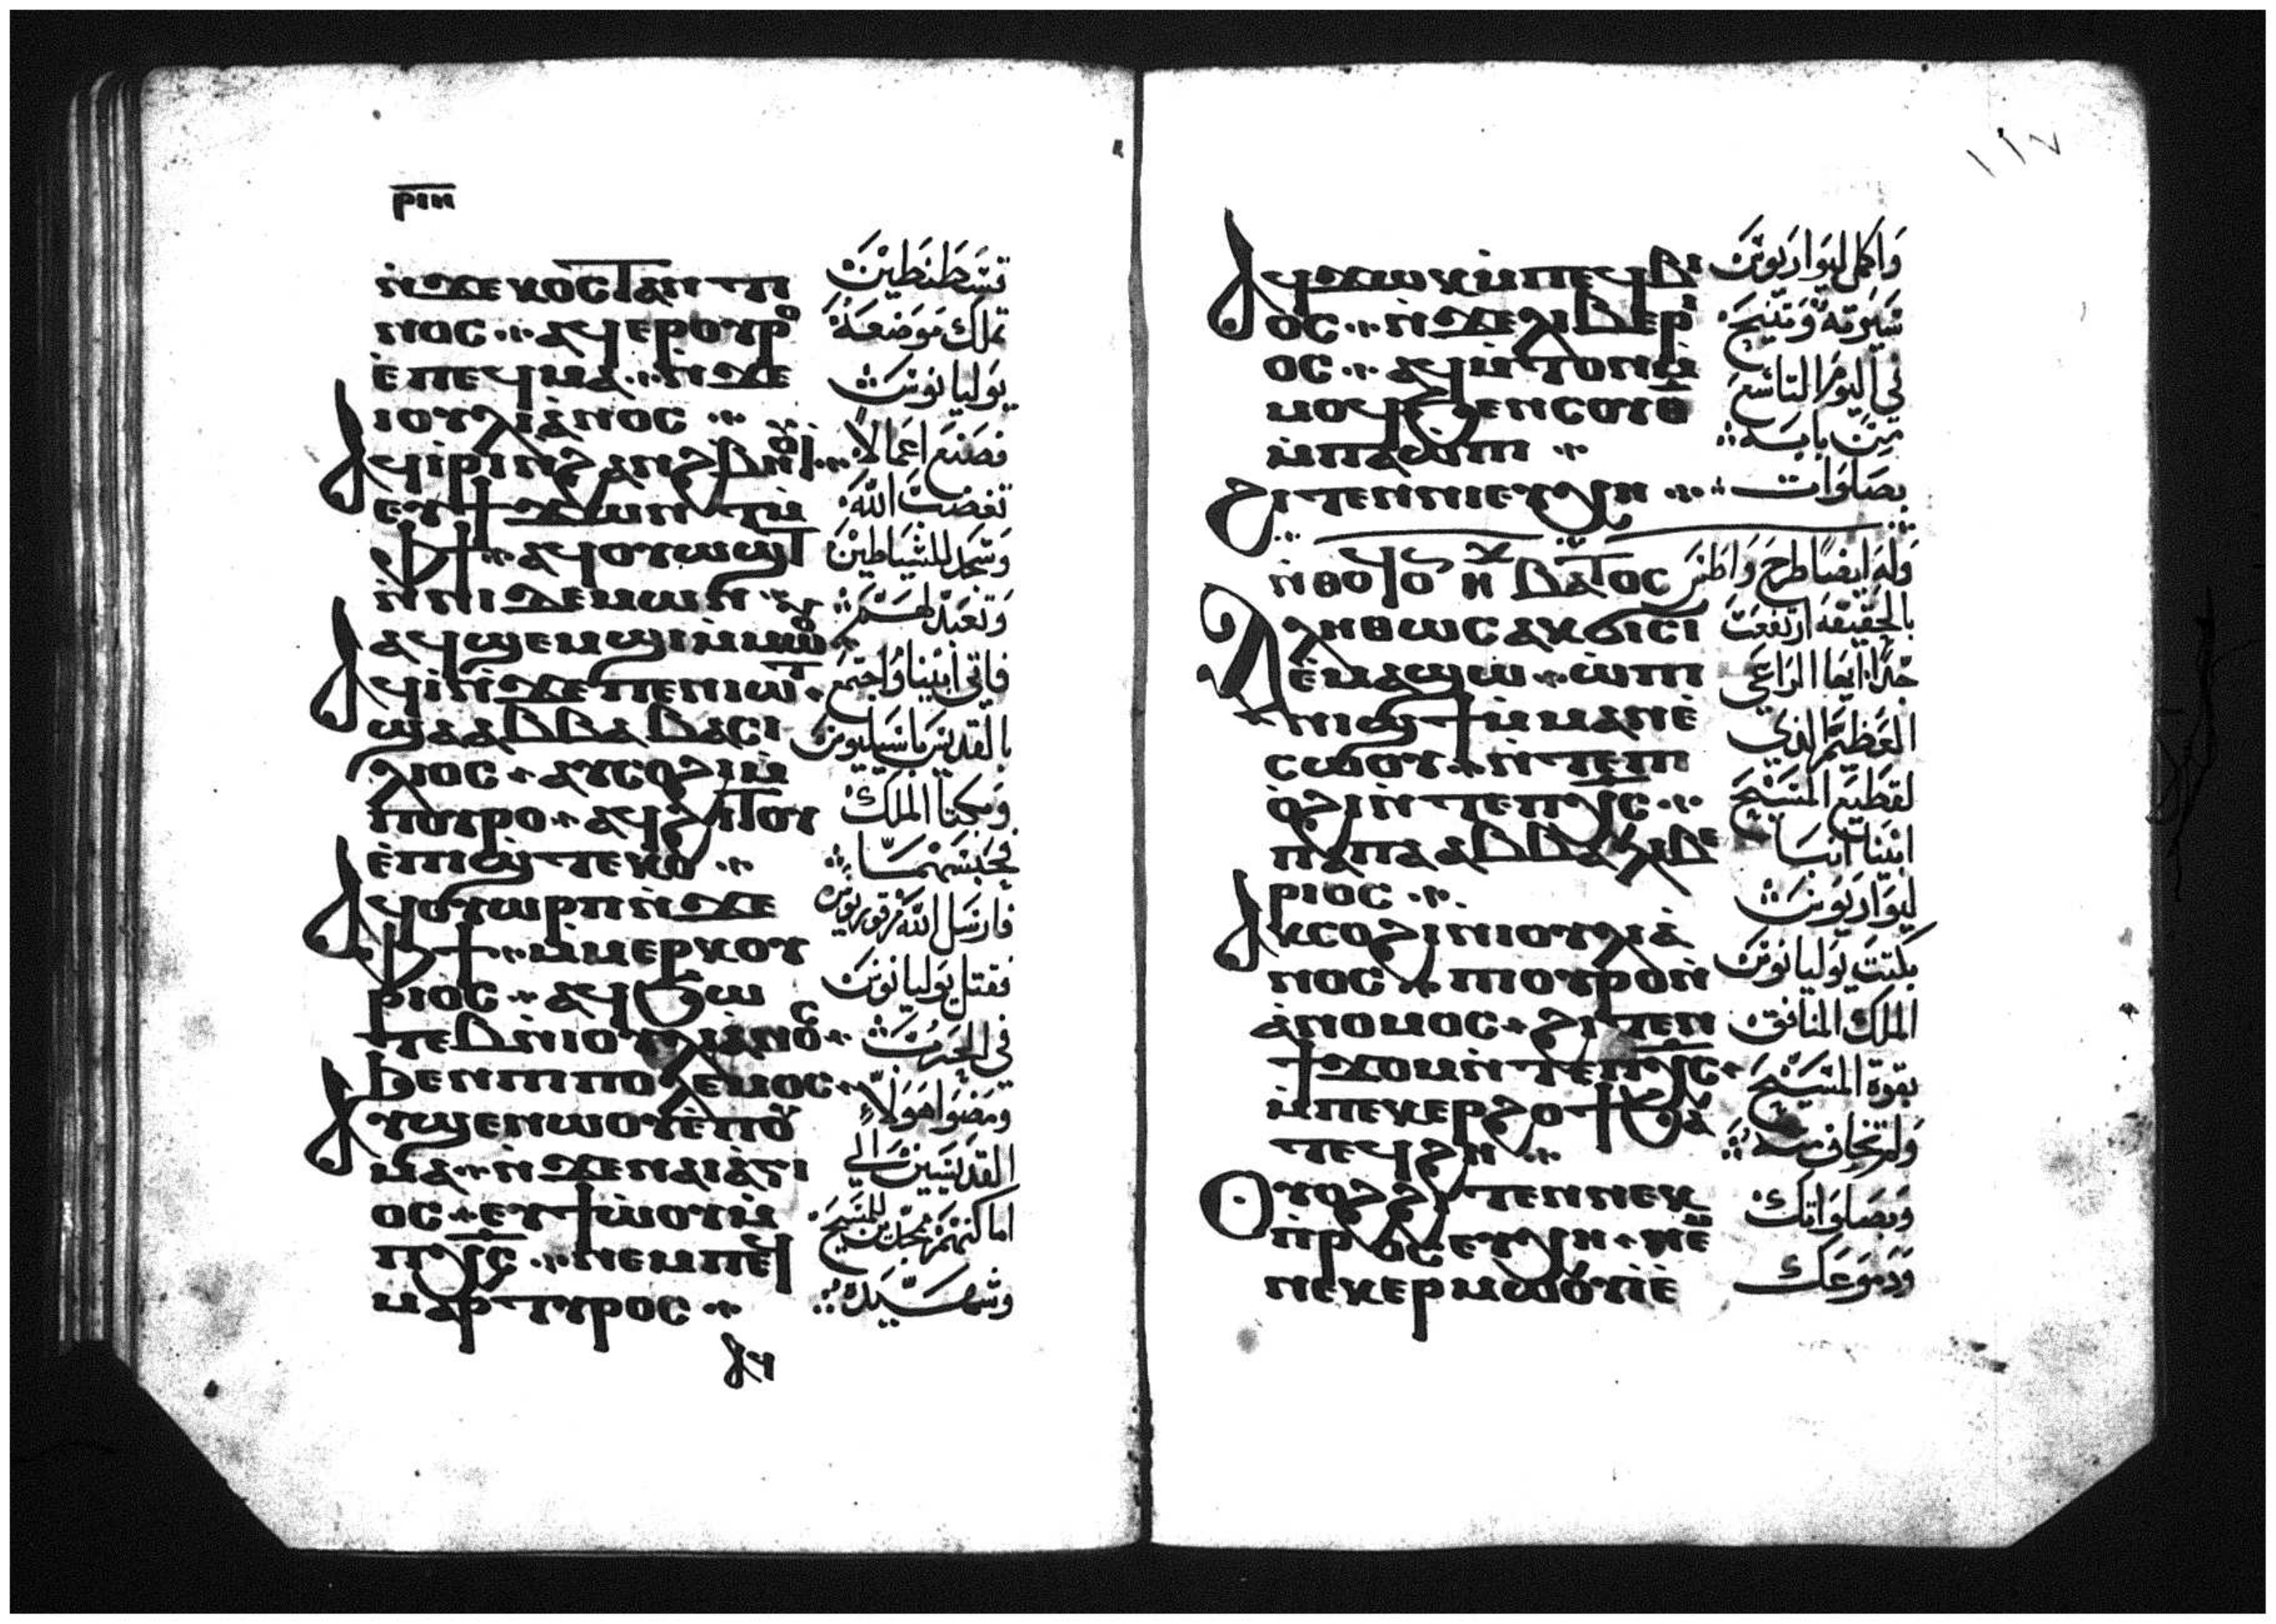 ⲣⲓⲏ
ⲛ̀ϫⲉⲕⲟⲥⲧⲁⲛⲧⲓ
ⲛⲟⲥ ⲁϥⲉⲣⲟⲩⲣⲟ
ⲉ̀ⲡⲉϥⲙⲁ ⲛ̀ϫⲉ
ⲓⲟⲩⲗⲓⲁⲛⲟⲥ
ⲁϥⲓⲣⲓ ⲛ̀ϩⲁⲛϩⲃⲏⲟⲩⲓ
ⲉⲩϯϫⲱⲛⲧ ⲙ̀
ⲫϯ ⲁϥⲟⲩⲱϣⲧ
ⲛ̀ⲛⲓⲇⲉⲙⲱⲛ
ⲁϥϣⲉⲙϣⲓ ⲙ̀ⲙⲱⲟⲩ
ⲁϥⲓ̀ ⲛ̀ϫⲉⲡⲉⲛⲓⲱⲧ
ϣⲁ ⲁⲃⲃⲁ ⲃⲁⲥⲓ
ⲗⲓⲟⲥ ⲁⲩⲥⲟϩⲓ ⲙ̀
ⲡⲟⲩⲣⲟ ⲁϥϩⲓⲧⲟⲩ
ⲉ̀ⲡⲓϣⲧⲉⲕⲟ
ⲁϥⲟⲩⲱⲣⲡ ⲛ̀ϫⲉ
ⲫϯ ⲙ̀ⲙⲉⲣⲕⲟⲩ
ⲣⲓⲟⲥ ⲁϥϧⲱ
ⲧⲉⲃ ⲛ̀ⲓⲟⲩⲗⲓⲁⲛⲟⲥ
ϧⲉⲛⲡⲓⲡⲟⲗⲉⲙⲟⲥ
ⲁⲩϣⲉⲛⲱⲟⲩ ⲉ̀ⲡⲟⲩ
ⲙⲁ ⲛ̀ϫⲉⲛⲁⲓⲁ̀ⲅⲓ
ⲟⲥ ⲉⲩϯⲱ̀ⲟⲩ ⲙ̀
ⲡⲭⲥ ⲛⲉⲙⲡⲉϥ
ⲙⲁⲣⲧⲩⲣⲟⲥ
ⲁϥ
قسطنطين
تملك موضعه
يوليانوس
فصنع اعمالاً
تغضب الله
وسجد للشياطين
وتعبد لهم
فاتى ابينا واجتمع
بالقديس باسيليوس
وبكتا الملك
فحبسهما
فارسل الله مرقوريوس
فقتل يوليانوس
في الحرب
ومضوا هولاء
القديسين الي
اماكنهم ممجدين للمسيح
وشهيده
١١٧
ⲁϥϫⲱⲕ ⲙ̀ⲡⲉϥⲃⲓ
ⲟⲥ ⲛ̀ϫⲉⲗⲓⲃⲉⲣⲓ
ⲟⲥ ⲁϥⲙ̀ⲧⲟⲛ ⲙ̀
ⲙⲟϥ ϧⲉⲛⲥⲟⲩⲑ̅
ⲙ̀ⲡⲁⲱ̀ⲡⲓ
ϩⲓⲧⲉⲛ ⲛⲓⲉⲩⲭⲏ
ⲛ̀ⲑⲟϥ ⲟⲛ ⲏⲭ ⲃⲁⲧⲟⲥ
ⲁⲗⲏⲑⲱⲥ ⲁⲕϭⲓⲥⲓ
ⲉ̀ⲙⲁϣⲱ ⲱ̀ⲡⲓ
ⲛⲓϣϯ ⲙ̀ⲙⲁⲛⲉ
ⲥⲱⲟⲩ ⲛ̀ⲧⲉⲡⲓ
ⲟ̀ϩⲓ ⲛ̀ⲧⲉⲡⲭⲥ
ⲡⲁⲡⲁ ⲁⲃⲃⲁ ⲗⲓⲃⲉ
ⲣⲓⲟⲥ
ⲁⲕⲥⲟϩⲓ ⲛ̀ⲓⲟⲩⲗⲓⲁ̀
ⲛⲟⲥ ⲡⲓⲟⲩⲣⲟ ⲛ̀
ⲁ̀ⲛⲟⲙⲟⲥ ϩⲓⲧⲉⲛ
ϯϫⲟⲙ ⲛ̀ⲧⲉⲡⲭⲥ
ⲙ̀ⲡⲉⲕⲉⲣϩⲟϯ ϧⲁ
ⲧⲉϥϩⲏ
ⲟⲩⲟϩ ϩⲓⲧⲉⲛ ⲛⲉⲕ
ⲡ̀ⲣⲟⲥⲉⲩⲭⲏ ⲛⲉⲙ
ⲛⲉⲕⲉⲣⲙⲱⲟⲩⲓ̀
واكمل ليواريوس
سيرته وتنيح
في اليوم التاسع
من بابه
بصلوات
وله ايضاً طرح واطس
بالحقيقه ارتفعت
جداً ايها الراعي
العظيم الذي
لقطيع المسيح
ابينا انبا
ليواريوس
بكتت يوليانوس
الملك المنافق
بقوة المسيح
ولم تخاف منه
وبصلواتك
ودموعك